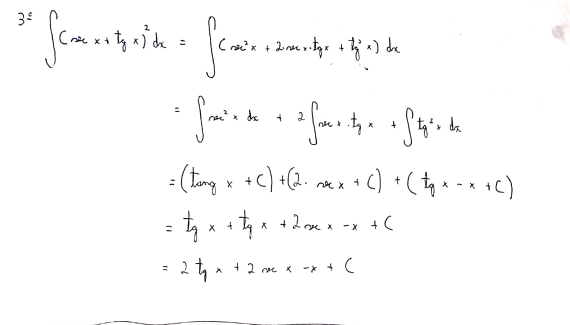 3º ∫(sec x + tg x)² dx = ∫(sec² x + 2 sec x · tg x + tg² x) dx
= ∫sec² x dx + 2 ∫sec x · tg x + ∫tg² x dx
= (tang x + C) + (2 · sec x + C) + (tg x - x + C)
= tg x + tg x + 2 sec x - x + C
= 2 tg x + 2 sec x - x + C